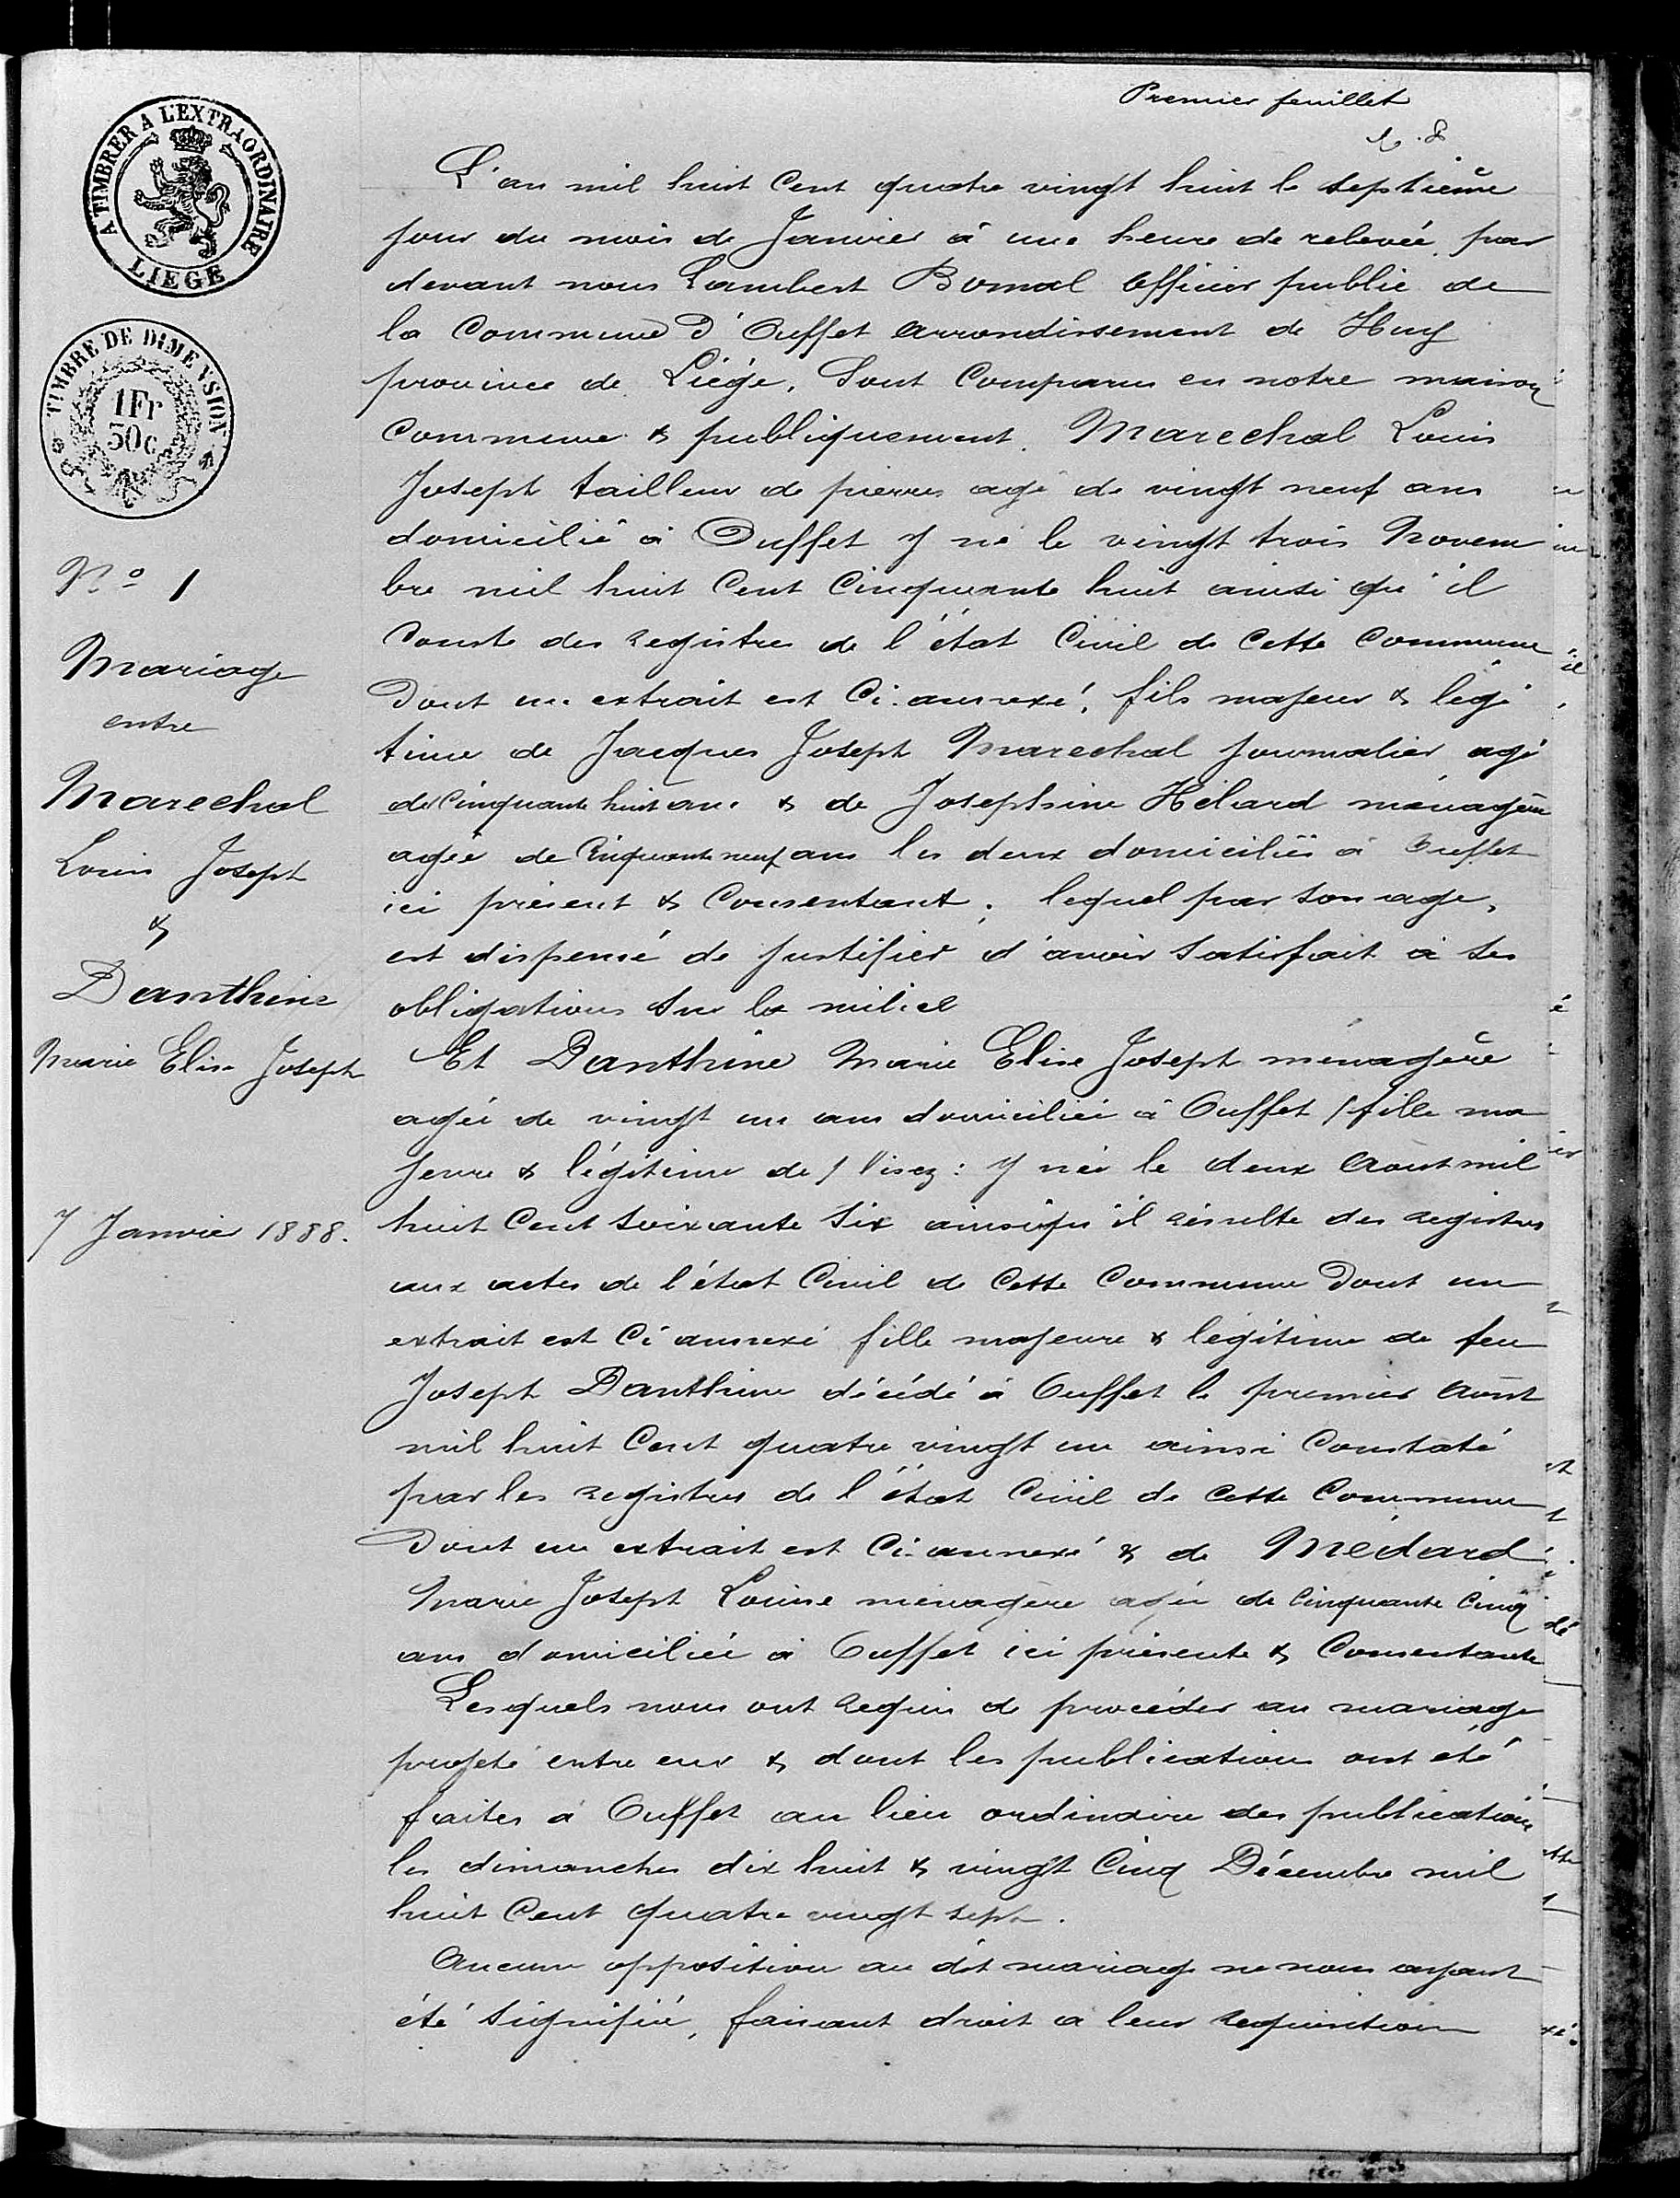 Premier feuillet
A TIMBRER A L'EXTRAORDINAIRE
LIEGE
TIMBRE DE DIMENSION
1Fr
50c
No 1
Mariage
entre
Marechal
Louis Joseph
&
Danthine
Marie Elise Joseph
7 Janvier 1888.
L'an mil huit Cent quatre vingt huit le septième
jour du mois de Janvier à une heure de relevée, par
devant nous Lambert Bomal officier public de
la Commune d'Ouffet arrondissement de Huy
province de Liége, Sont Comparus en notre maison
Commune & publiquement. Marechal Louis
Joseph tailleur de pierres agé de vingt neuf ans
domicilié à Ouffet y né le vingt trois Novem
bre mil huit Cent Cinquante huit ainsi qu'il
Conste des registres de l'état Civil de Cette Commune
Dont un extrait est Ci-annexé, fils majeur & légi
time de Jacques Joseph Marechal journalier agé
de Cinquante huit ans & de Josephine Hélard ménagère
agée de Cinquante neuf ans les deux domiciliés à Ouffet
ici présent & Consentant; lequel par son age,
est dispensé de justifier d'avoir Satisfait à ses
obligations Sur la milice
Et Danthine Marie Elise Joseph ménagère
agée de vingt un ans domiciliée à Ouffet / fille ma
jeure & légitime de / Visez: y née le deux Aout mil
huit Cent Soixante Six ainsi qu'il résulte des registres
aux actes de l'état Civil de Cette Commune Dont un
extrait est Ci annexé fille majeure & légitime de feu
Joseph Danthine décédé à Ouffet le premier Août
mil huit Cent quatre vingt un ainsi Constaté
par les registres de l'état Civil de cette Commune
Dont un extrait est Ci-annexé & de Médard
Marie Joseph Louise ménagère agée de Cinquante Cinq
ans domiciliée à Ouffet ici présente & Consentante
Lesquels nous ont requis de procéder au mariage
projeté entre eux & dont les publications ont été
faites à Ouffet au lieu ordinaire des publications
les dimanches dix huit & vingt Cinq Décembre mil
huit Cent quatre vingt sept.
Aucune opposition au dit mariage ne nous ayant
été Signifiée, faisant droit à leur requisition